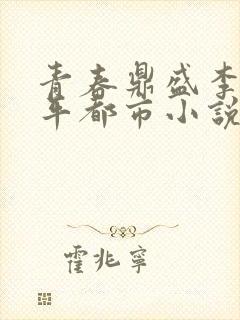 青春鼎盛李
年都市小說
霍兆寧